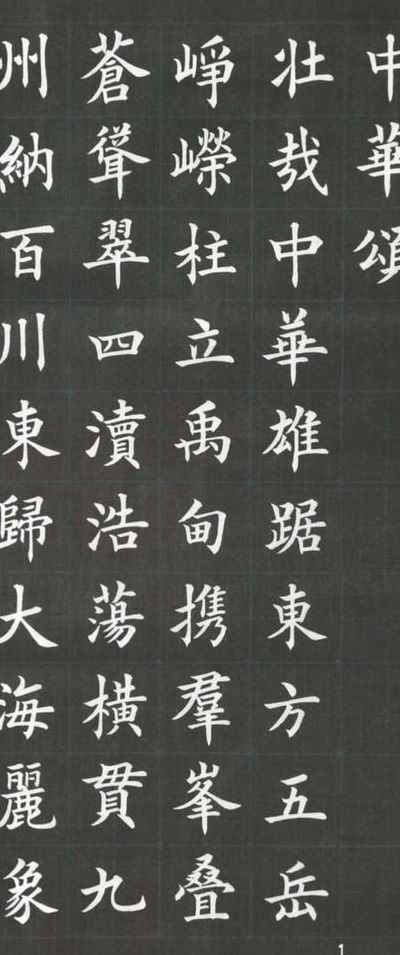 中華頌
壯哉中華雄踞東方五岳
崢嶸柱立禹甸携羣峯叠
蒼聳翠四瀆浩蕩橫貫九
州納百川東歸大海麗象
1